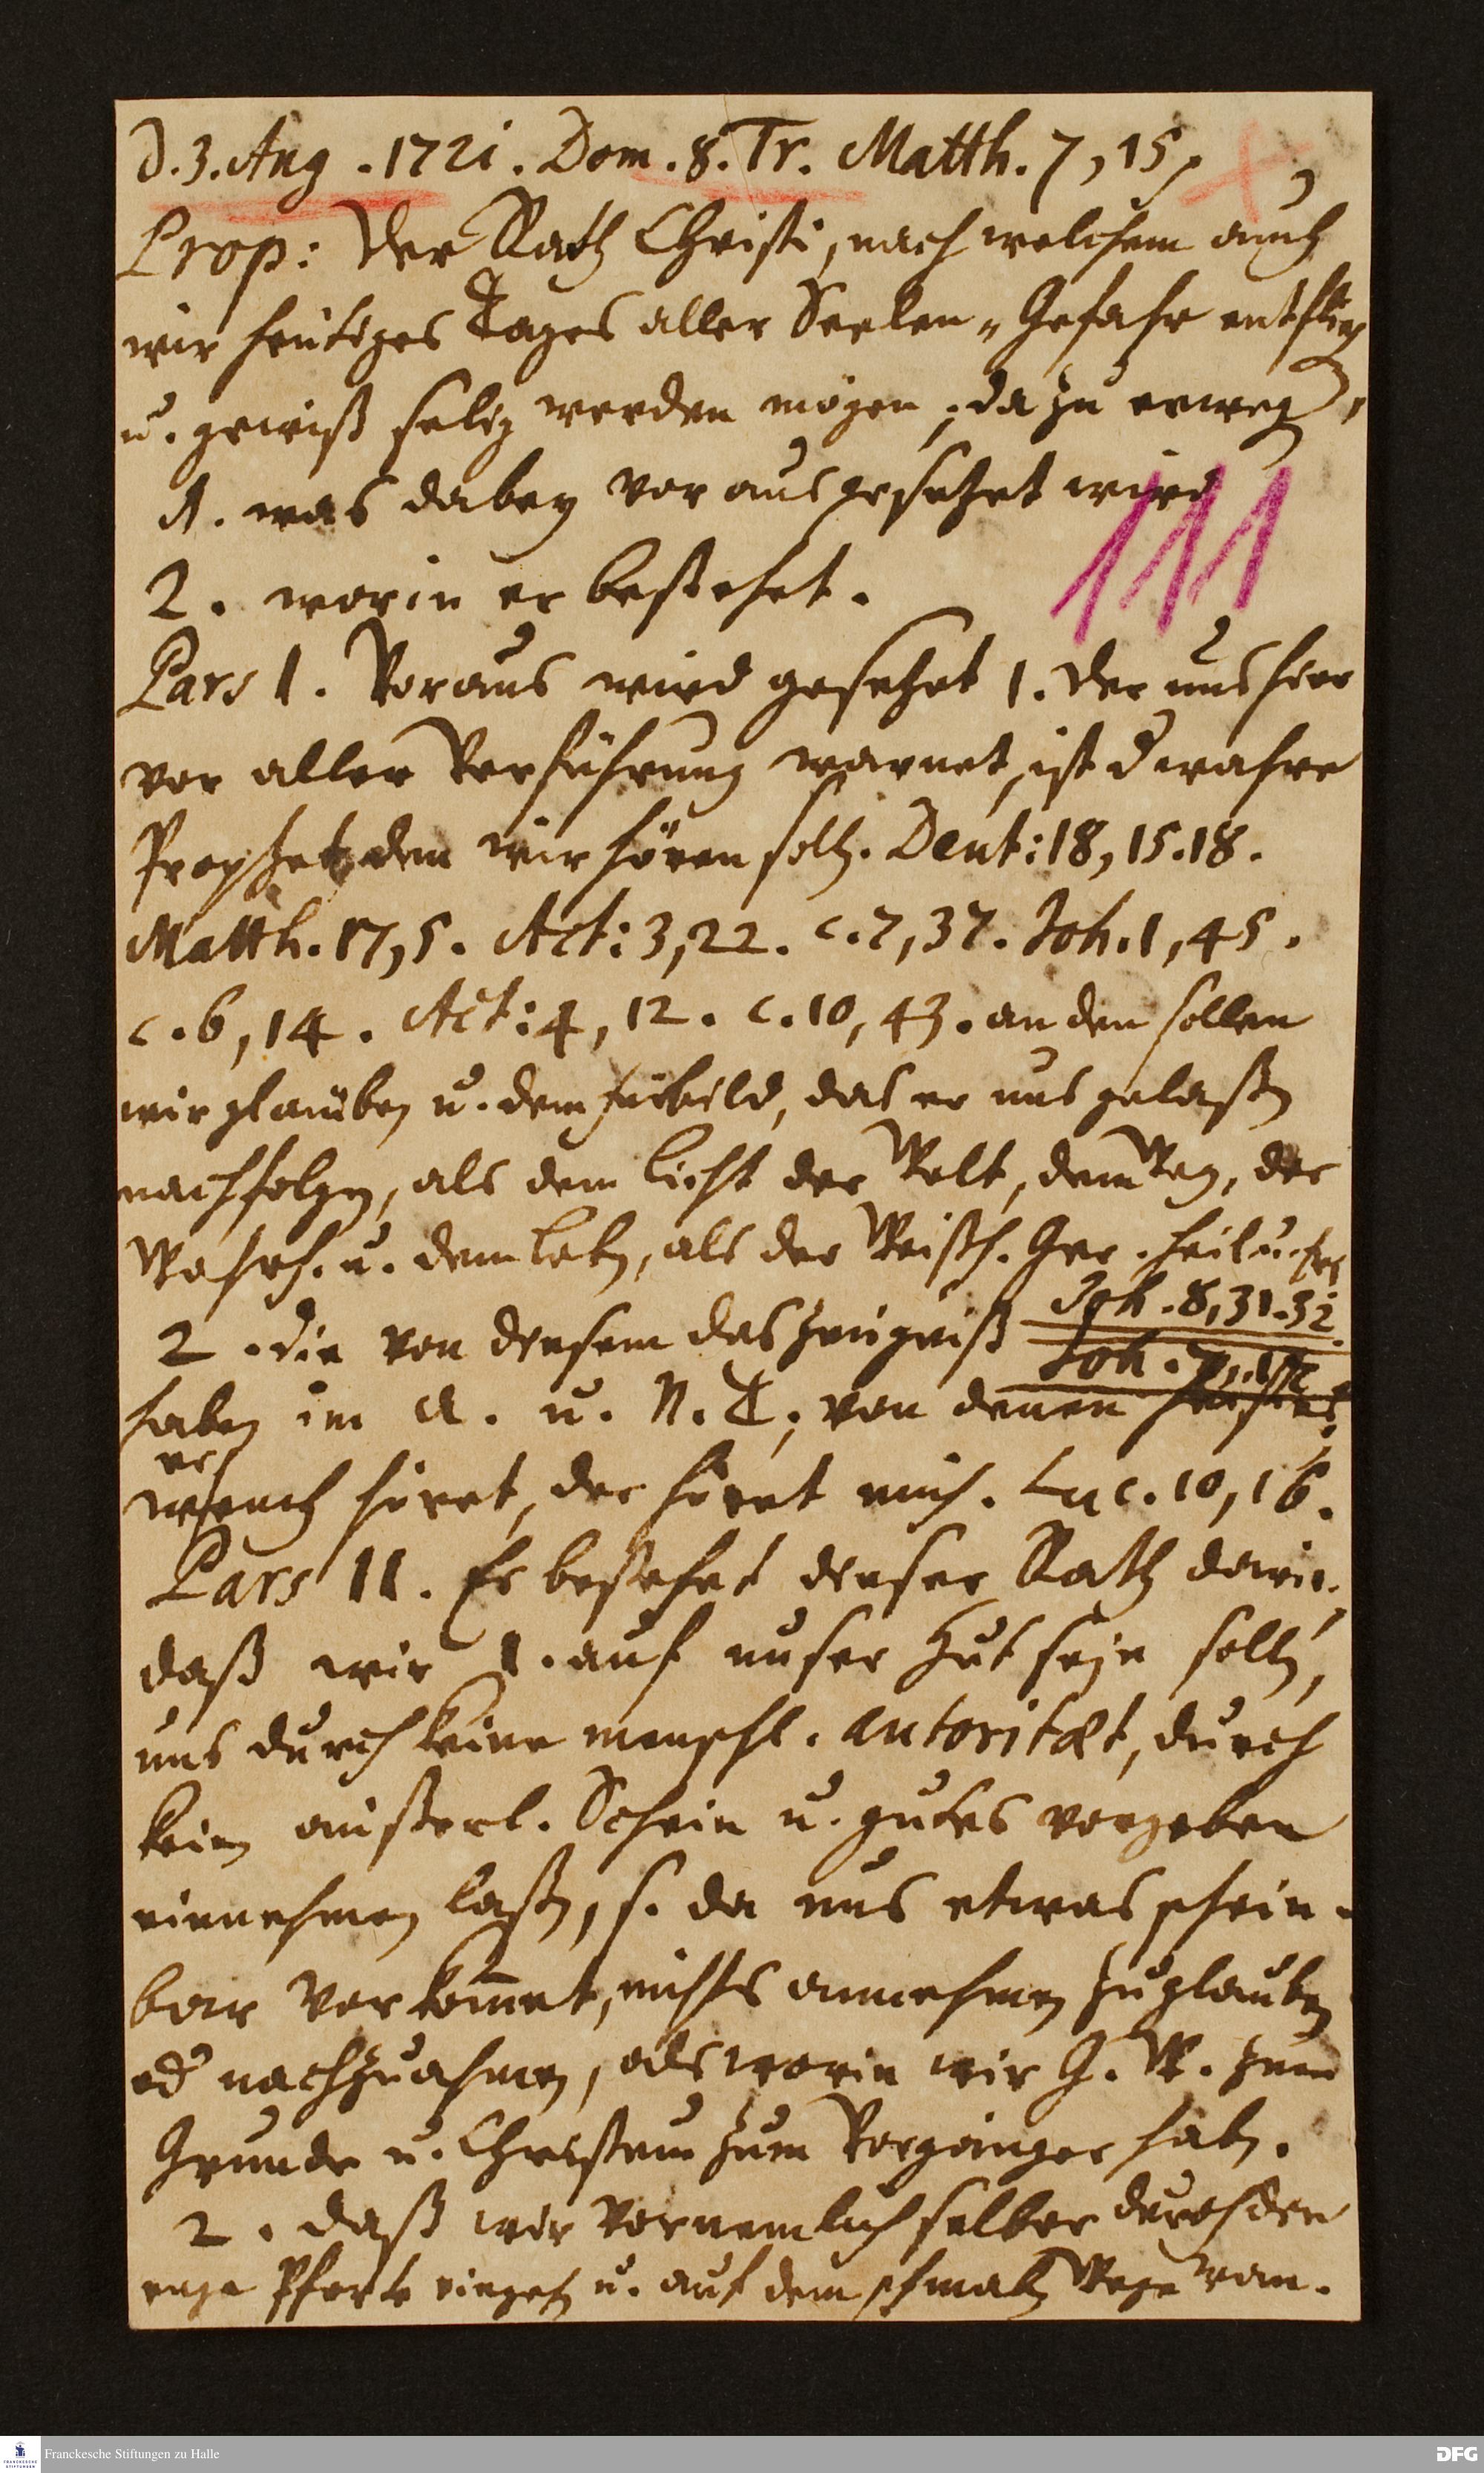 D. 3. Aug. 1721. Dom. 8. Tr. Matth. 7, 15.
Prop: Der Rath Christi, nach welchem auch
wir heutiges Tages aller Seelen-Gefahr entflieh
u. gewiß selig werden mögen, dazu erweg,
1. was dabey voraus gesetzet wird
2. worin er bestehet.
111
Pars 1. Voraus wird gesetzet 1. der uns hier
vor aller Verführung warnet, ist d wahre
Prophet dem wir hören solln. Deut: 18, 15. 18.
Matth. 17, 5. Act: 3, 22. c. 7, 37. Joh. 1, 45.
c. 6, 14. Act: 4, 12. c. 10, 43. an den sollen
wir glauben u. dem fürbild, das er uns gelaßen
nachfolgen, als dem licht der Welt, dem Weg, der
Wahrh. u. dem leben, als der Weißh. Ger. heil u.
Joh. 8, 31. 32.
2. die von diesem das Zeugniß Joh. 7,
haben im A. u. N. T., von denen heißts:
wer euch höret, der höret mich. Luc. 10, 16.
Pars 11. Es bestehet dieser Rath darin.
daß wir 1. auf unser Hut seyn solln,
uns durch keine menschl. autoritæt, durch
kein äußerl. Schein u. gutes vorgeben
einnehmen laßen, s. da uns etwas schein-
bar vorkom̄et, nichts annehmen zu glauben
od nachzuahmen, als worin wir G. W. zum
Grunde u. Christum zum Vorgänger haben.
2. daß wir vornemlich selber durch die
enge Pforte eingeh u. auf dem schmalen Wege wan-
Franckesche Stiftungen zu Halle
DFG